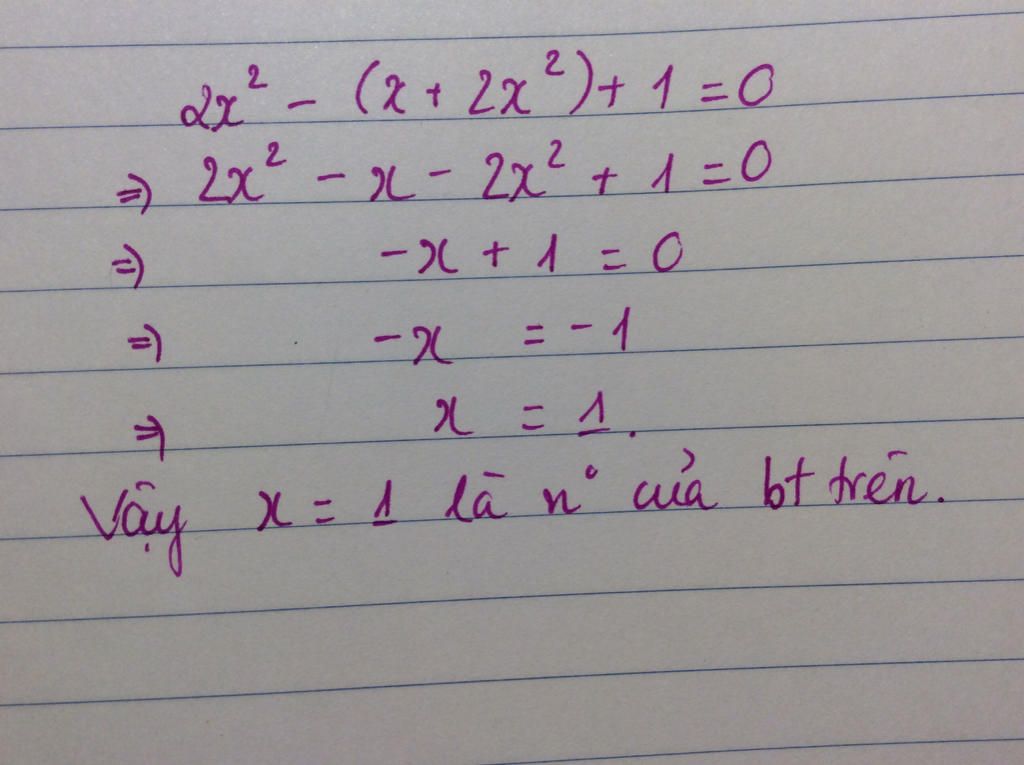 2x² - (x + 2x²) + 1 = 0
=> 2x² - x - 2x² + 1 = 0
=> -x + 1 = 0
=> -x = -1
=> x = 1.
Vậy x = 1 là n° của bt trên.